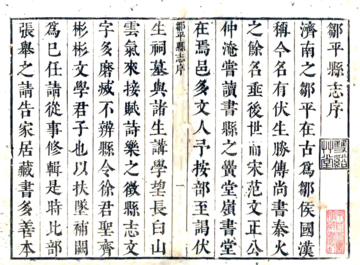 鄒平縣志序
濟南之鄒平在古爲鄒侯國漢
稱今名有伏生勝傳尚書秦火
之餘名垂後世而宋范文正公
仲淹嘗讀書縣之黌堂嶺書堂
在焉邑多文人予按部至謁伏
鄒平縣志序
一
生祠墓與諸生講學望長白山
雲氣來接賦詩樂之徵縣志文
字多磨滅不辨縣令徐君聖齊
彬彬文學君子也以扶墜補闕
爲己任請從事修輯是時比部
張舉之請告家居藏書多善本